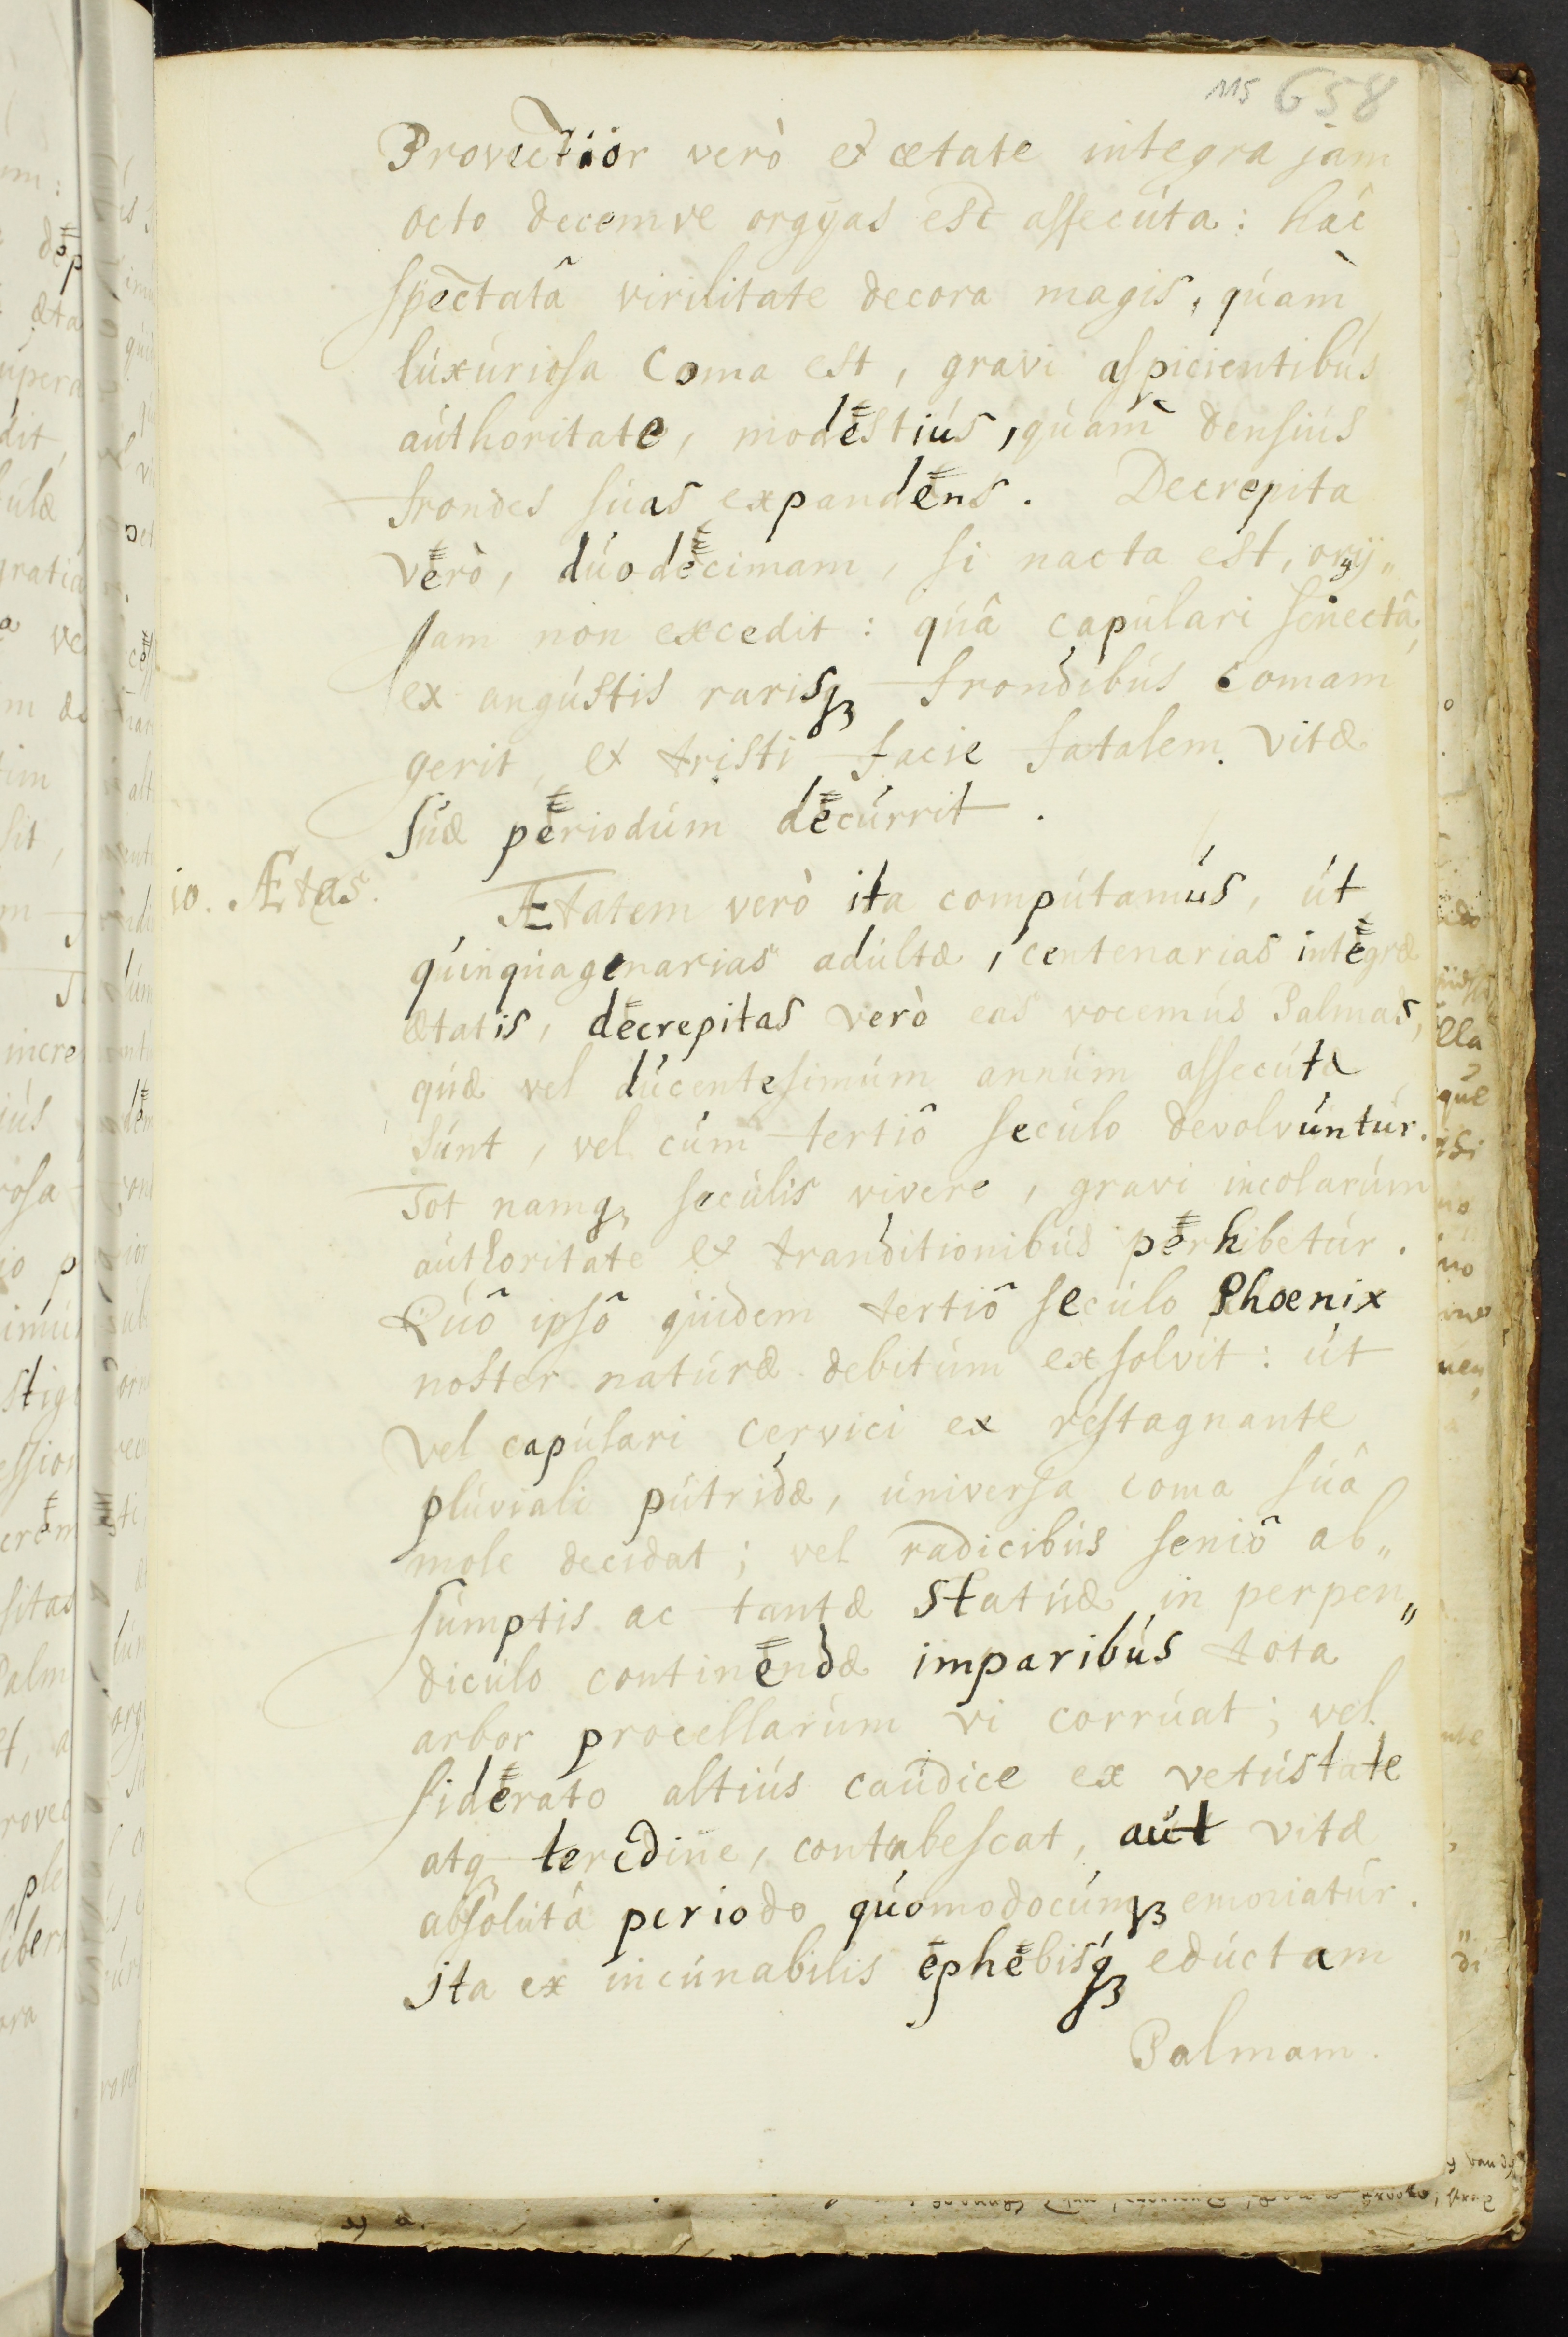 115 658
Provectior verò et ætate integra jam
octo decemve orgÿas est assecúta: hâc
spectatâ virilitate decora magis, qúam̀
lúxúriosa coma est, gravi aspicientibús
aúthoritate, modestiús, qúam̀ densiús
frondes súas expandens. Decrepita
verò, dúodecimam, si nacta est, orgÿ„
jam non excedit: qúâ capúlari senectâ,
ex angústis rarisqꝫ frondibús comam
gerit, et tristi facie fatalem vitæ
súæ periodúm decúrrit.
10. Ætas.
Ætatem verò ita compútamús, út
qúinqúagenarias adúltæ, centenarias integræ
ætatis, decrepitas verò eas vocemús Palmas,
qúæ vel dúcentesimúm annúm assecúta
súnt, vel cúm tertiô secúlo devolvúntúr.
Tot namqꝫ secúlis vivere, gravi incolarúm
aúthoritate et tranditionibús perhibetúr.
Qúô ipsô qúidem tertiô secúlo Phoenix
noster natúræ debitúm exsolvit: út
vel capúlari cervici ex restagnante
plúviali pútridæ, úniversa coma súâ
mole decidat; vel radicibús seniô ab„
súmptis ac tantæ statúæ in perpen„
dicúlo continendæ imparibús tota
arbor procellarúm vi corrúat; vel
siderato altiús caúdice ex vetústate
atqꝫ teredine, contabescat, aút vitæ
absolútâ periodo qúomodocúmqꝫ emoriatúr.
Ita ex incúnabilis ephebisqꝫ edúctam
Palmam.